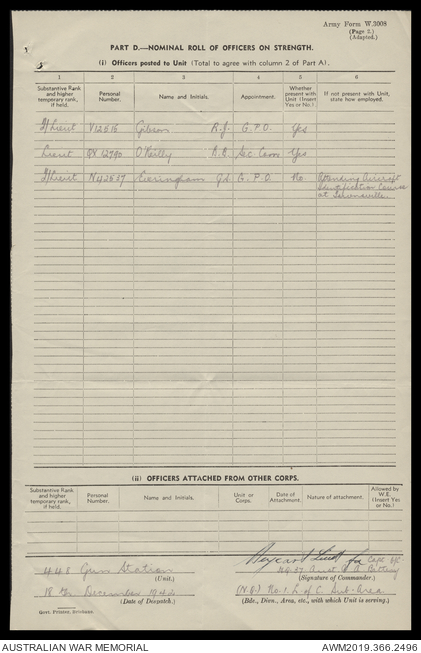 Army Form W.3008
(Page 3.)
(Adapted.)
PART D.—NOMINAL ROLL OF OFFICERS ON STRENGTH.
(i) Officers posted to Unit (Total to agree with column 2 of Part A).
1 2 3 4 5 6
Substantive Rank and higher temporary rank, if held. Personal Number. Name and Initials. Appointment. Whether present with Unit (Insert Yes or No.) If not present with Unit, state how employed.
Lieut Gibson R.J. G.P.O. Yes
Lieut QX 12790 O'Reilly Sec Com Yes
Lieut Everingham G.P.O. No Attending Aircraft
Identification Course
at
(ii) OFFICERS ATTACHED FROM OTHER CORPS.
Substantive Rank and higher temporary rank, if held. Personal Number. Name and Initials. Unit or Corps. Date of Attachment. Nature of attachment. Allowed by W.E. (Insert Yes or No.)
Lieut for Capt
448 Gun Station Aust A A Battery
(Unit.) (Signature of Commander.)
18 th December 1942 (N.G.) No. 1 L of C Sub-Area
(Date of Despatch.) (Bde., Divn., Area, etc., with which Unit is serving.)
Govt. Printer, Brisbane
AUSTRALIAN WAR MEMORIAL AWM2019.366.2496